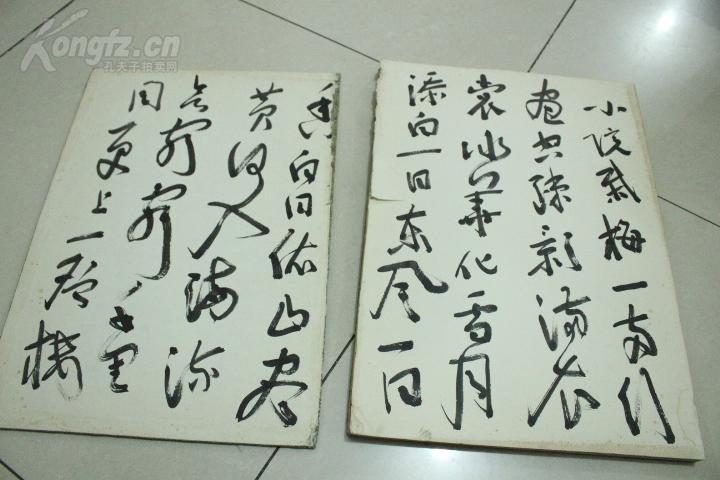 Kongfz.cn
孔夫子拍卖网
小院栽梅一两行
画空疏影满衣
裳冰華化雪月
添白一日东风一日
香白日依山尽
黄河入海流
欲穷穷千里
目更上一层楼